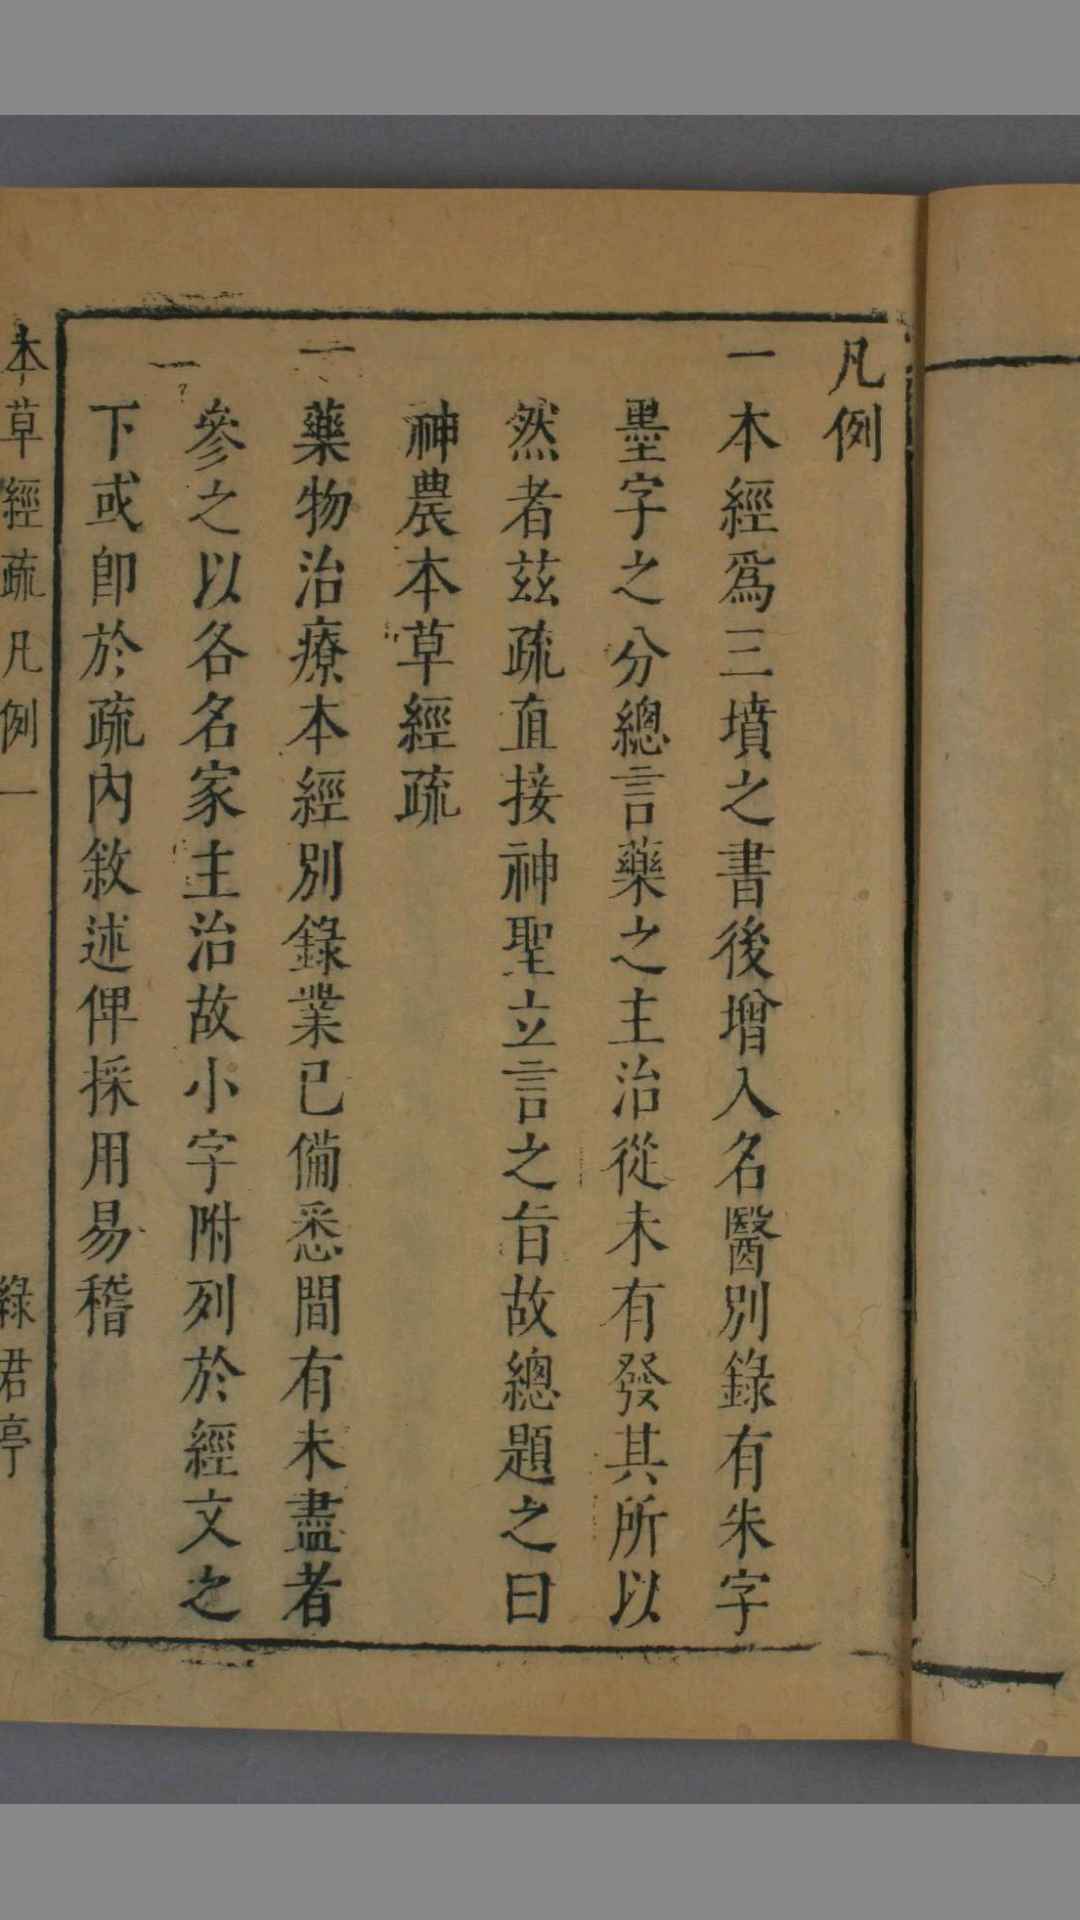 凡例
一本經爲三墳之書後增入名醫別錄有朱字
墨字之分總言藥之主治從未有發其所以
然者茲疏直接神聖立言之旨故總題之曰
神農本草經疏
一藥物治療本經別錄業已備悉間有未盡者
一參之以各名家主治故小字附列於經文之
下或卽於疏內敘述俾採用易稽
本草經疏凡例 一 綠君亭